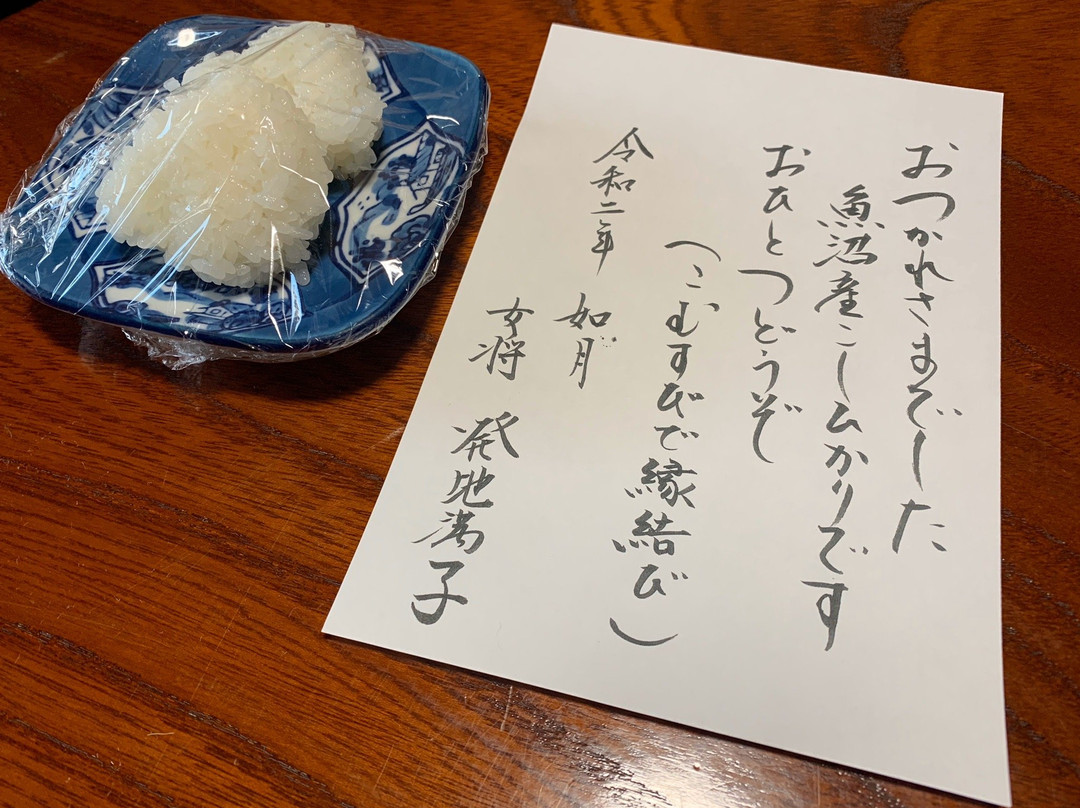 おつかれさまでした
魚沼産こしひかりです
おひとつどうぞ
（こむすびで縁結び）
令和二年 如月
女将 発地満子